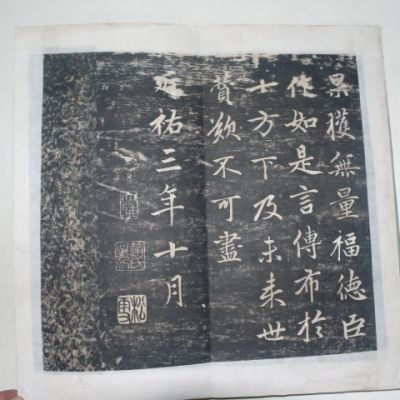 果獲無量福德臣
作如是言傳布於
十方下及未来世
賛歎不可盡
延祐三年十月
松雪